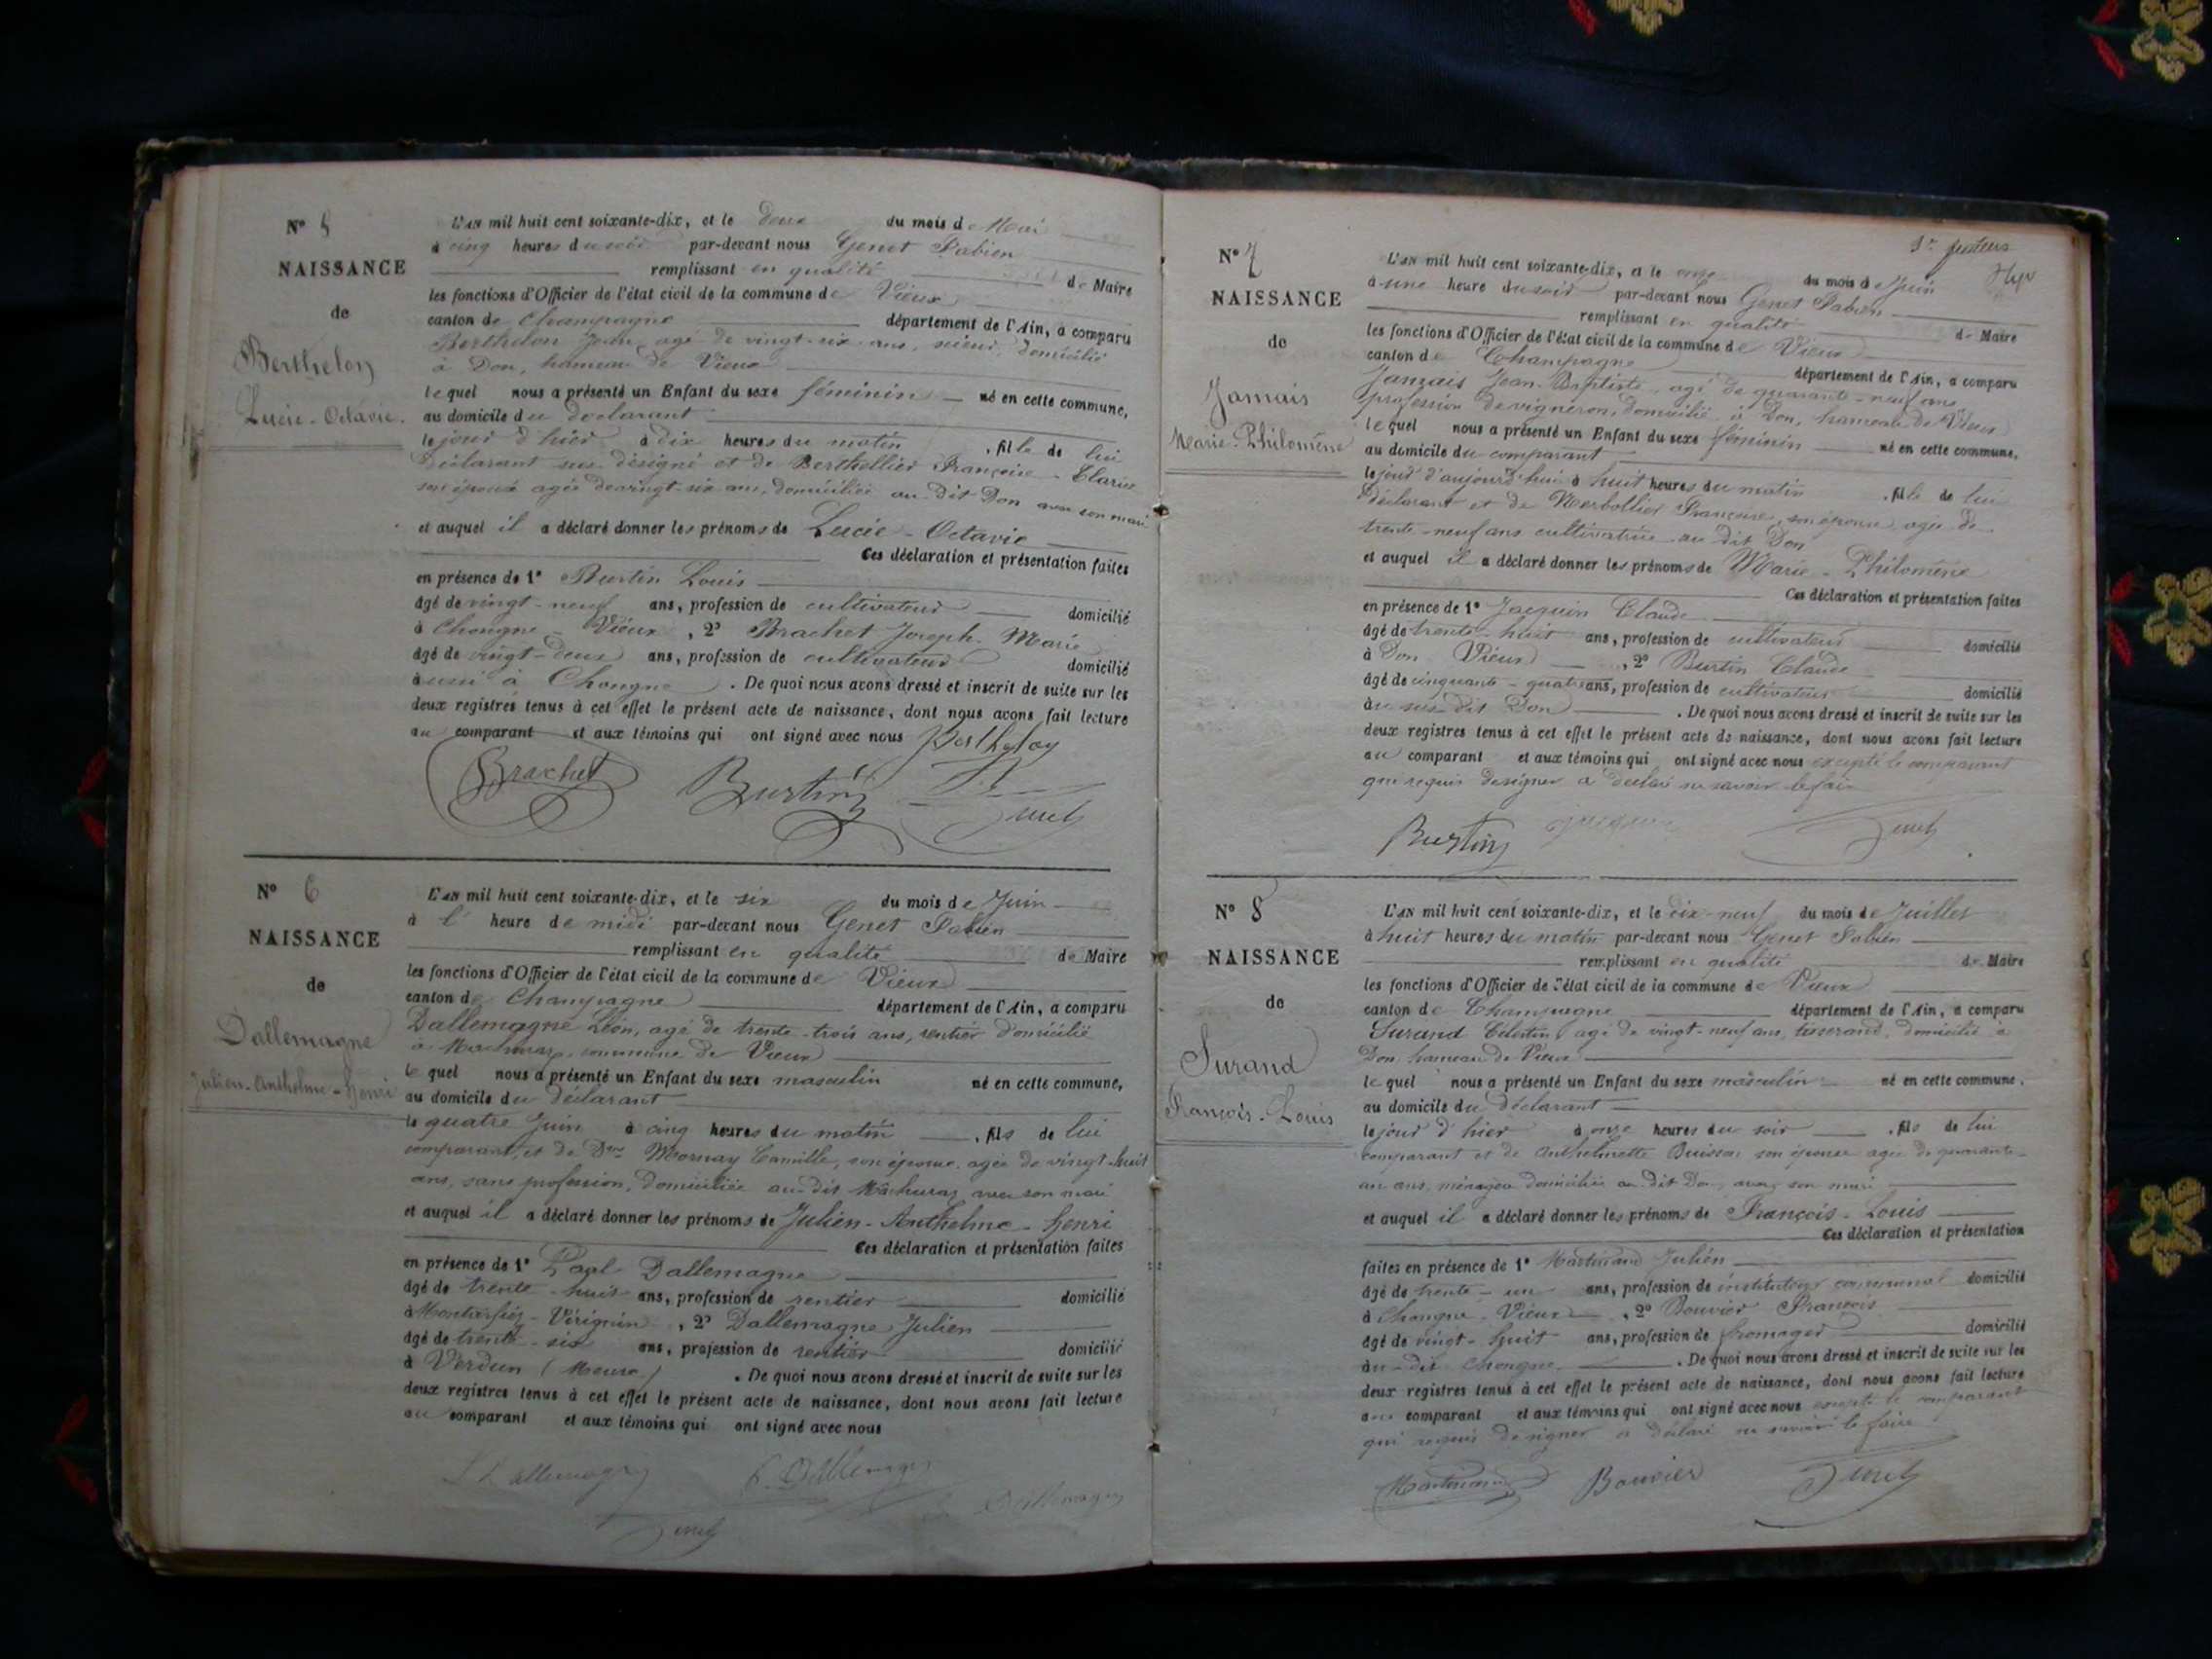 N° 5
NAISSANCE
de
Berthelon
Lucie-Octavie.
L'AN mil huit cent soixante-dix, et le deux du mois de Mai
à cinq heures du soir par-devant nous Genet Fabien
remplissant en qualité de Maire
les fonctions d'Officier de l'état civil de la commune de Vieux
canton de Champagne département de l'Ain, a comparu
Berthelon Jean, agé de vingt-six ans, domicilié
à Don, hameau de Vieux
lequel nous a présenté un Enfant du sexe féminin né en cette commune,
au domicile du declarant
le jour d'hier à dix heures du matin, fille de lui
déclarant sus-désigné et de Berthellier Françoise-Clarie
son épouse agée de vingt-six ans, domiciliée au dit Don avec son mari
et auquel il a déclaré donner les prénoms de Lucie-Octavie
Ces déclaration et présentation faites
en présence de 1° Burtin Louis
âgé de vingt-neuf ans, profession de cultivateur domicilié
à Chongne-Vieux, 2° Brachet Joseph-Marie
âgé de vingt-deux ans, profession de cultivateur domicilié
aussi à Chongne. De quoi nous avons dressé et inscrit de suite sur les
deux registres tenus à cet effet le présent acte de naissance, dont nous avons fait lecture
au comparant et aux témoins qui ont signé avec nous Berthelon
Brachet Burtin Genet
N° 6
NAISSANCE
de
Dallemagne
Julien-Anthelme-Henri
L'AN mil huit cent soixante-dix, et le six du mois de Juin
à l' heure de midi par-devant nous Genet Fabien
remplissant en qualité de Maire
les fonctions d'Officier de l'état civil de la commune de Vieux
canton de Champagne département de l'Ain, a comparu
Dallemagne Léon, agé de trente-trois ans, rentier domicilié
à Machuraz, commune de Vieux
lequel nous a présenté un Enfant du sexe masculin né en cette commune,
au domicile du déclarant
le quatre Juin à cinq heures du matin, fils de lui
comparant, et de Dme Mornay Camille, son épouse, agée de vingt-huit
ans, sans profession, domiciliée au-dit Machuraz avec son mari
et auquel il a déclaré donner les prénoms de Julien-Anthelme-Henri
Ces déclaration et présentation faites
en présence de 1° Paul Dallemagne
âgé de trente-huit ans, profession de rentier domicilié
à Virignin, 2° Dallemagne Julien
âgé de trente-six ans, profession de rentier domicilié
à Verdun (Meuse). De quoi nous avons dressé et inscrit de suite sur les
deux registres tenus à cet effet le présent acte de naissance, dont nous avons fait lecture
au comparant et aux témoins qui ont signé avec nous
L Dallemagne P. Dallemagne Dallemagne
Genet
N° 7
NAISSANCE
de
Jamais
Marie-Philomène
L'AN mil huit cent soixante-dix, et le onze du mois de Juin
à une heure du soir par-devant nous Genet Fabien
remplissant en qualité de Maire
les fonctions d'Officier de l'état civil de la commune de Vieux
canton de Champagne département de l'Ain, a comparu
Jamais Jean-Baptiste, agé de quarante-neuf ans
profession de vigneron, domicilié à Don, hameau de Vieux
lequel nous a présenté un Enfant du sexe féminin né en cette commune,
au domicile du comparant
le jour d'aujourd'hui à huit heures du matin, fille de lui
déclarant et de Françoise, son épouse agée de
trente-neuf ans cultivatrice au dit Don
et auquel il a déclaré donner les prénoms de Marie-Philomène
Ces déclaration et présentation faites
en présence de 1° Jacquin Claude
âgé de trente-huit ans, profession de cultivateur domicilié
à Don Vieux, 2° Burtin Claude
âgé de cinquante-quatre ans, profession de cultivateur domicilié
au sus-dit Don. De quoi nous avons dressé et inscrit de suite sur les
deux registres tenus à cet effet le présent acte de naissance, dont nous avons fait lecture
au comparant et aux témoins qui ont signé avec nous excepté le comparant
qui requis de signer a déclaré ne savoir le faire
Burtin Jacquin Genet
N° 8
NAISSANCE
de
Surand
François-Louis
L'AN mil huit cent soixante-dix, et le dix-neuf du mois de Juillet
à huit heures du matin par-devant nous Genet Fabien
remplissant en qualité de Maire
les fonctions d'Officier de l'état civil de la commune de Vieux
canton de Champagne département de l'Ain, a comparu
Surand Célestin, agé de vingt-neuf ans, tisserand, domicilié à
Don hameau de Vieux
lequel nous a présenté un Enfant du sexe masculin né en cette commune,
au domicile du déclarant
le jour d'hier à onze heures du soir, fils de lui
comparant et de Anthelmette Buisson son épouse agée de quarante-
un ans, ménagère domiciliée au dit Don, avec son mari
et auquel il a déclaré donner les prénoms de François-Louis
Ces déclaration et présentation
faites en présence de 1° Martinand Julien
âgé de trente-un ans, profession de instituteur communal domicilié
à Chongne-Vieux, 2° Bouvier François
âgé de vingt-huit ans, profession de fromager domicilié
au-dit Chongne. De quoi nous avons dressé et inscrit de suite sur les
deux registres tenus à cet effet le présent acte de naissance, dont nous avons fait lecture
au comparant et aux témoins qui ont signé avec nous excepté le comparant
qui requis de signer a déclaré ne savoir le faire
Martinand Bouvier Genet